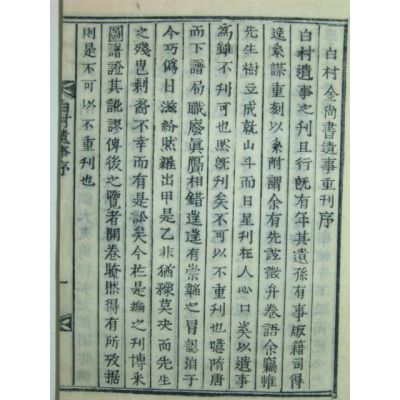 白村金尚書遺事重刊序
白村遺事之刊且行旣有年其遺孫有事版籍司得
逸系謀重刻以系附謂余有先誼徵弁卷語余竊惟
先生樹立成就山斗而日星刊在人心口奚以遺事
爲雖不刊可也然旣刊矣不可以不重刊也噫隋唐
而下譜局職廢眞贗相錯逞逞有崇韜之冒認洎于
今巧僞日滋紛然雜出甲是乙非猶豫莫決而先生
之殘邑剩裔不幸而有是訟矣今茬是編之刊博采
圖譜證其訛謬俾後之覽者開卷瞭然得有所攷据
則是不可以不重刊也
白村遺事序
一